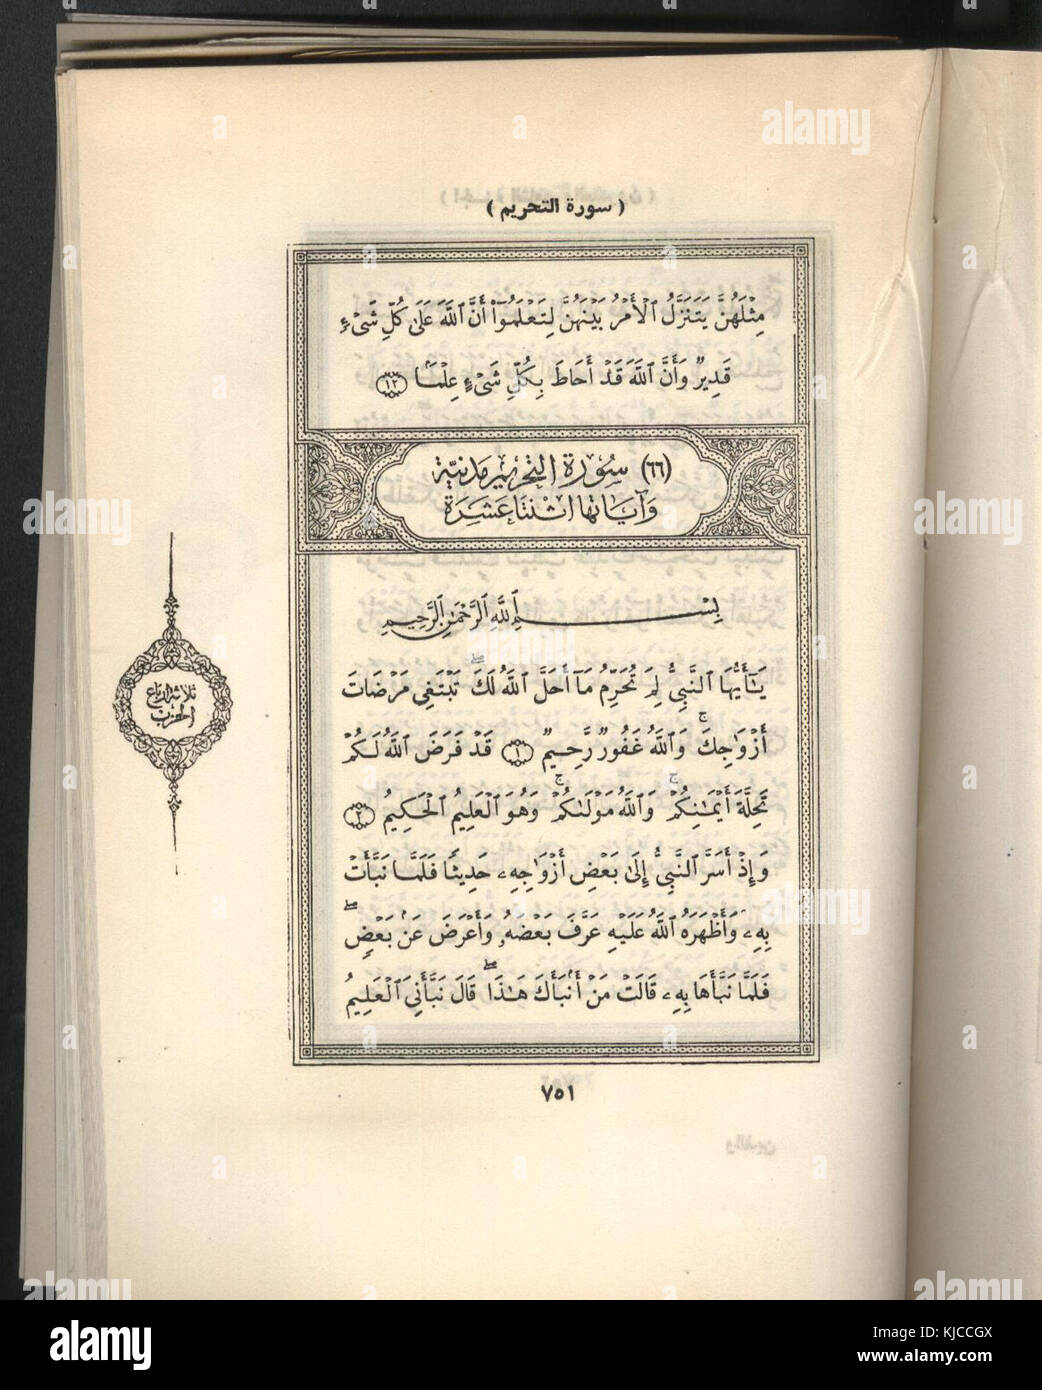 ( سورة التحريم )
مِثْلَهُنَّ يَتَنَزَّلُ ٱلْأَمْرُ بَيْنَهُنَّ لِتَعْلَمُوٓا۟ أَنَّ ٱللَّهَ عَلَىٰ كُلِّ شَىْءٍ
قَدِيرٌ وَأَنَّ ٱللَّهَ قَدْ أَحَاطَ بِكُلِّ شَىْءٍ عِلْمًۢا ١٢
(٦٦) سُورَةُ التَّحْرِيمِ مَدَنِيَّة
وَآيَاتُهَا اثْنَتَا عَشْرَةَ
بِسْمِ ٱللَّهِ ٱلرَّحْمَٰنِ ٱلرَّحِيمِ
يَٰٓأَيُّهَا ٱلنَّبِىُّ لِمَ تُحَرِّمُ مَآ أَحَلَّ ٱللَّهُ لَكَ ۖ تَبْتَغِى مَرْضَاتَ
أَزْوَٰجِكَ ۚ وَٱللَّهُ غَفُورٌ رَّحِيمٌ ١ قَدْ فَرَضَ ٱللَّهُ لَكُمْ
تَحِلَّةَ أَيْمَٰنِكُمْ ۚ وَٱللَّهُ مَوْلَىٰكُمْ ۚ وَهُوَ ٱلْعَلِيمُ ٱلْحَكِيمُ ٢
وَإِذْ أَسَرَّ ٱلنَّبِىُّ إِلَىٰ بَعْضِ أَزْوَٰجِهِۦ حَدِيثًا فَلَمَّا نَبَّأَتْ
بِهِۦ وَأَظْهَرَهُ ٱللَّهُ عَلَيْهِ عَرَّفَ بَعْضَهُۥ وَأَعْرَضَ عَنۢ بَعْضٍ ۖ
فَلَمَّا نَبَّأَهَا بِهِۦ قَالَتْ مَنْ أَنۢبَأَكَ هَٰذَا ۖ قَالَ نَبَّأَنِىَ ٱلْعَلِيمُ
ثلاثة أرباع
الحزب
٧٥١
alamy
Image ID: KJCCGX
www.alamy.com